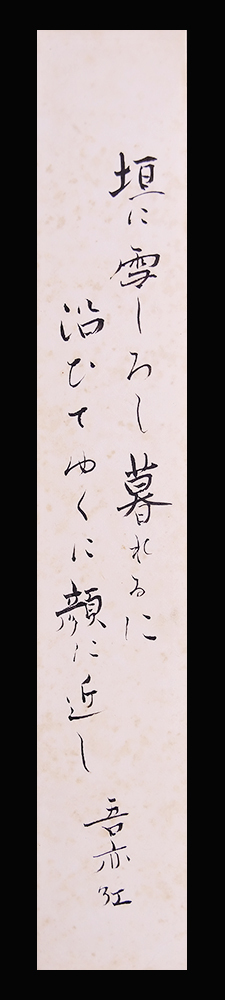 垣に雪しろし暮れるに
沿ひてゆくに顔に近し
吾亦紅